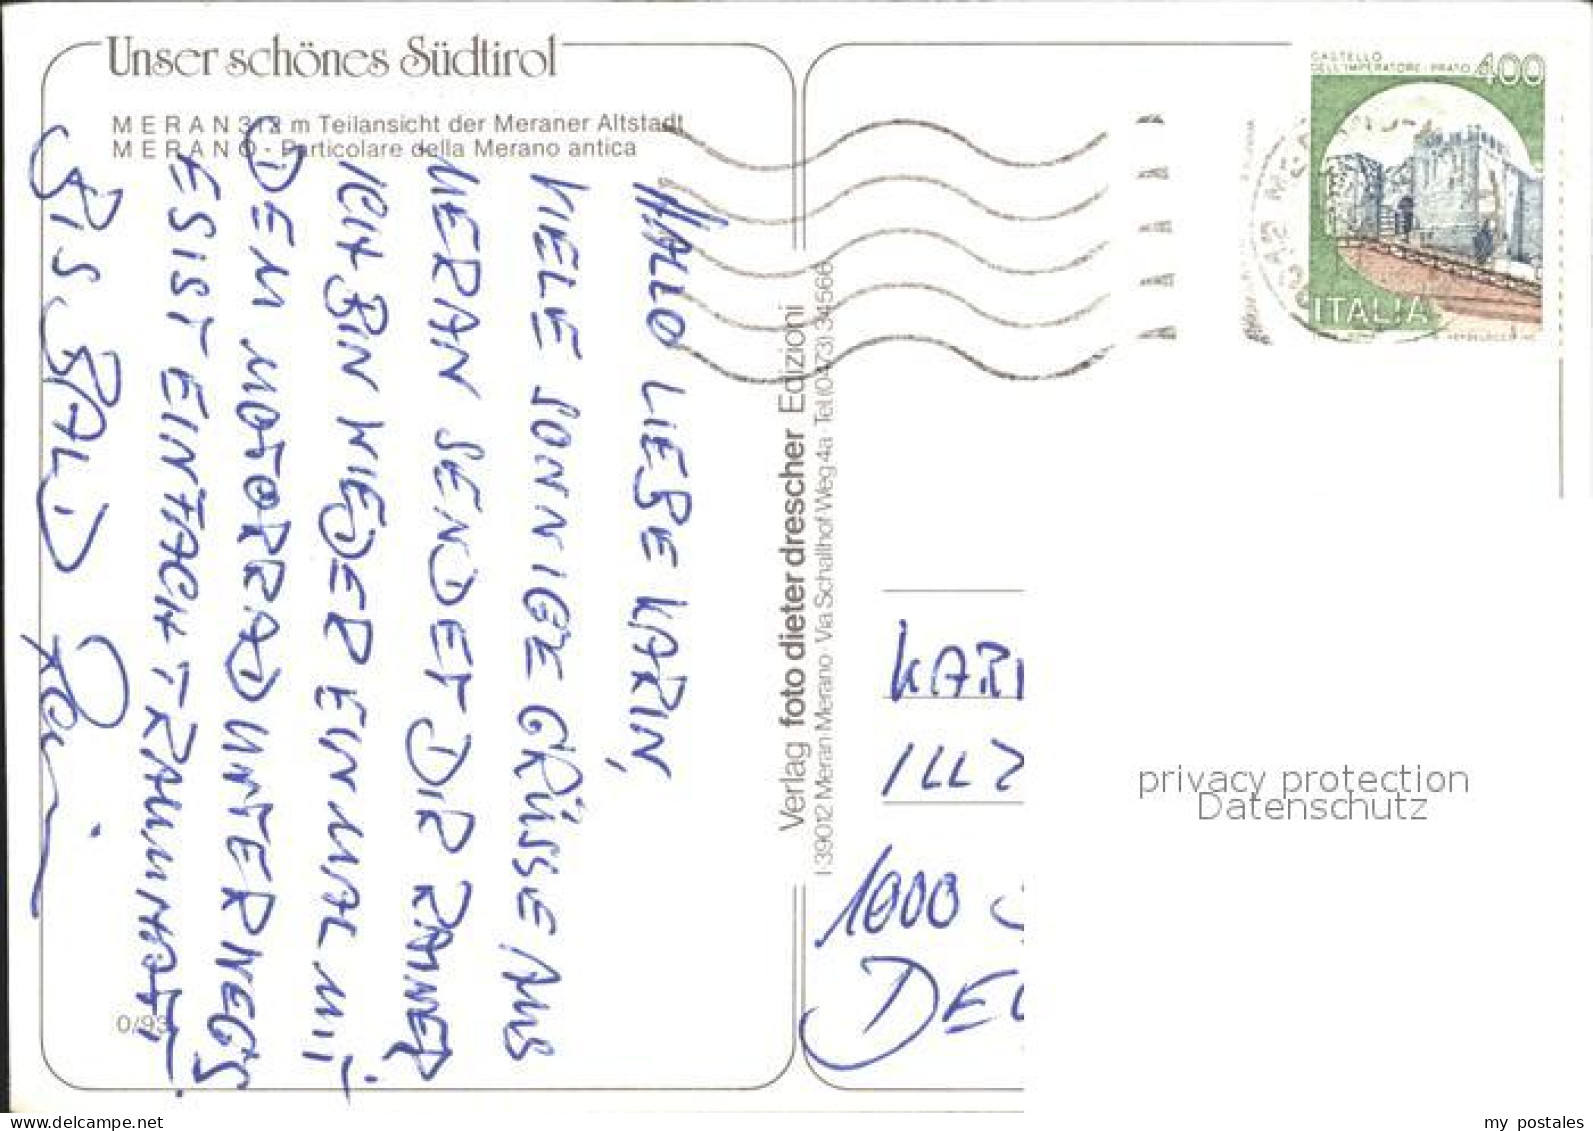 Unser schönes Südtirol
MERAN 312 m Teilansicht der Meraner Altstadt
MERANO - Particolare della Merano antica
HALLO LIEBE KARIN,
VIELE SONNIGE GRÜSSE AUS
MERAN SENDET DIR RAINER
ICH BIN WIEDER EINMAL MIT
DEM MOTORRAD UNTERWEGS
ES IST EINFACH TRAUMHAFT.
BIS BALD
0/93
Verlag foto dieter drescher Edizioni
I-39012 Meran Merano · Via Schallhof Weg 4a Tel. (0473) 34566
CASTELLO
DELL'IMPERATORE · PRATO
400
ITALIA
KARI
1000
DEU
privacy protection
Datenschutz
my postales